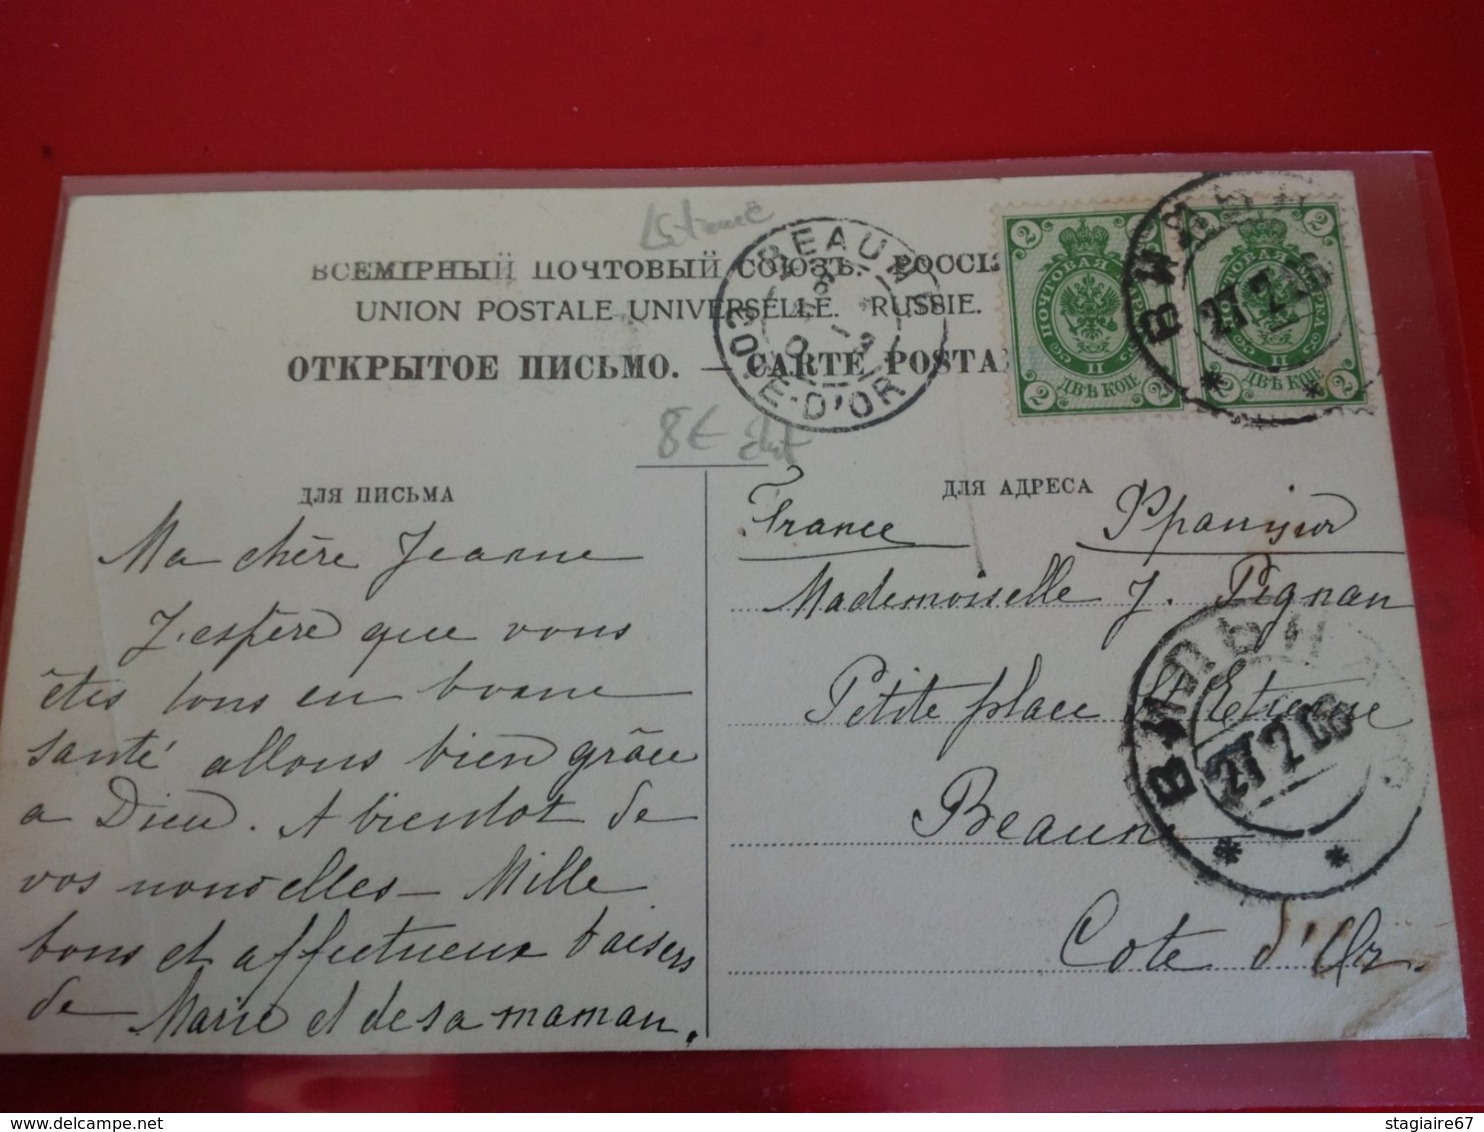 ВСЕМІРНЫЙ ПОЧТОВЫЙ СОЮЗЪ. РОССІ
UNION POSTALE UNIVERSELLE. RUSSIE.
ОТКРЫТОЕ ПИСЬМО. — CARTE POSTA
BEAUNE
CÔTE-D'OR
2 2
ПОЧТОВАЯ МАРКА
II
2 ДВѢ КОП. 2
2 2
ПОЧТОВАЯ МАРКА
II
ДВѢ КОП. 2
ВИЛЬН
27 2 06
8€
ДЛЯ ПИСЬМА
Ma chère Jeanne
J'espère que vous
êtes tous en bonne
santé allons bien grâce
a Dieu. A bientot de
vos nouvelles — Mille
bons et affectueux baisers
de Marie et de sa maman.
ДЛЯ АДРЕСА
France
Mademoiselle J. Pignan
Petite place St Etienne
Beaune
Cote d'Or
ВИЛЬН
27 2 06
stagiaire67